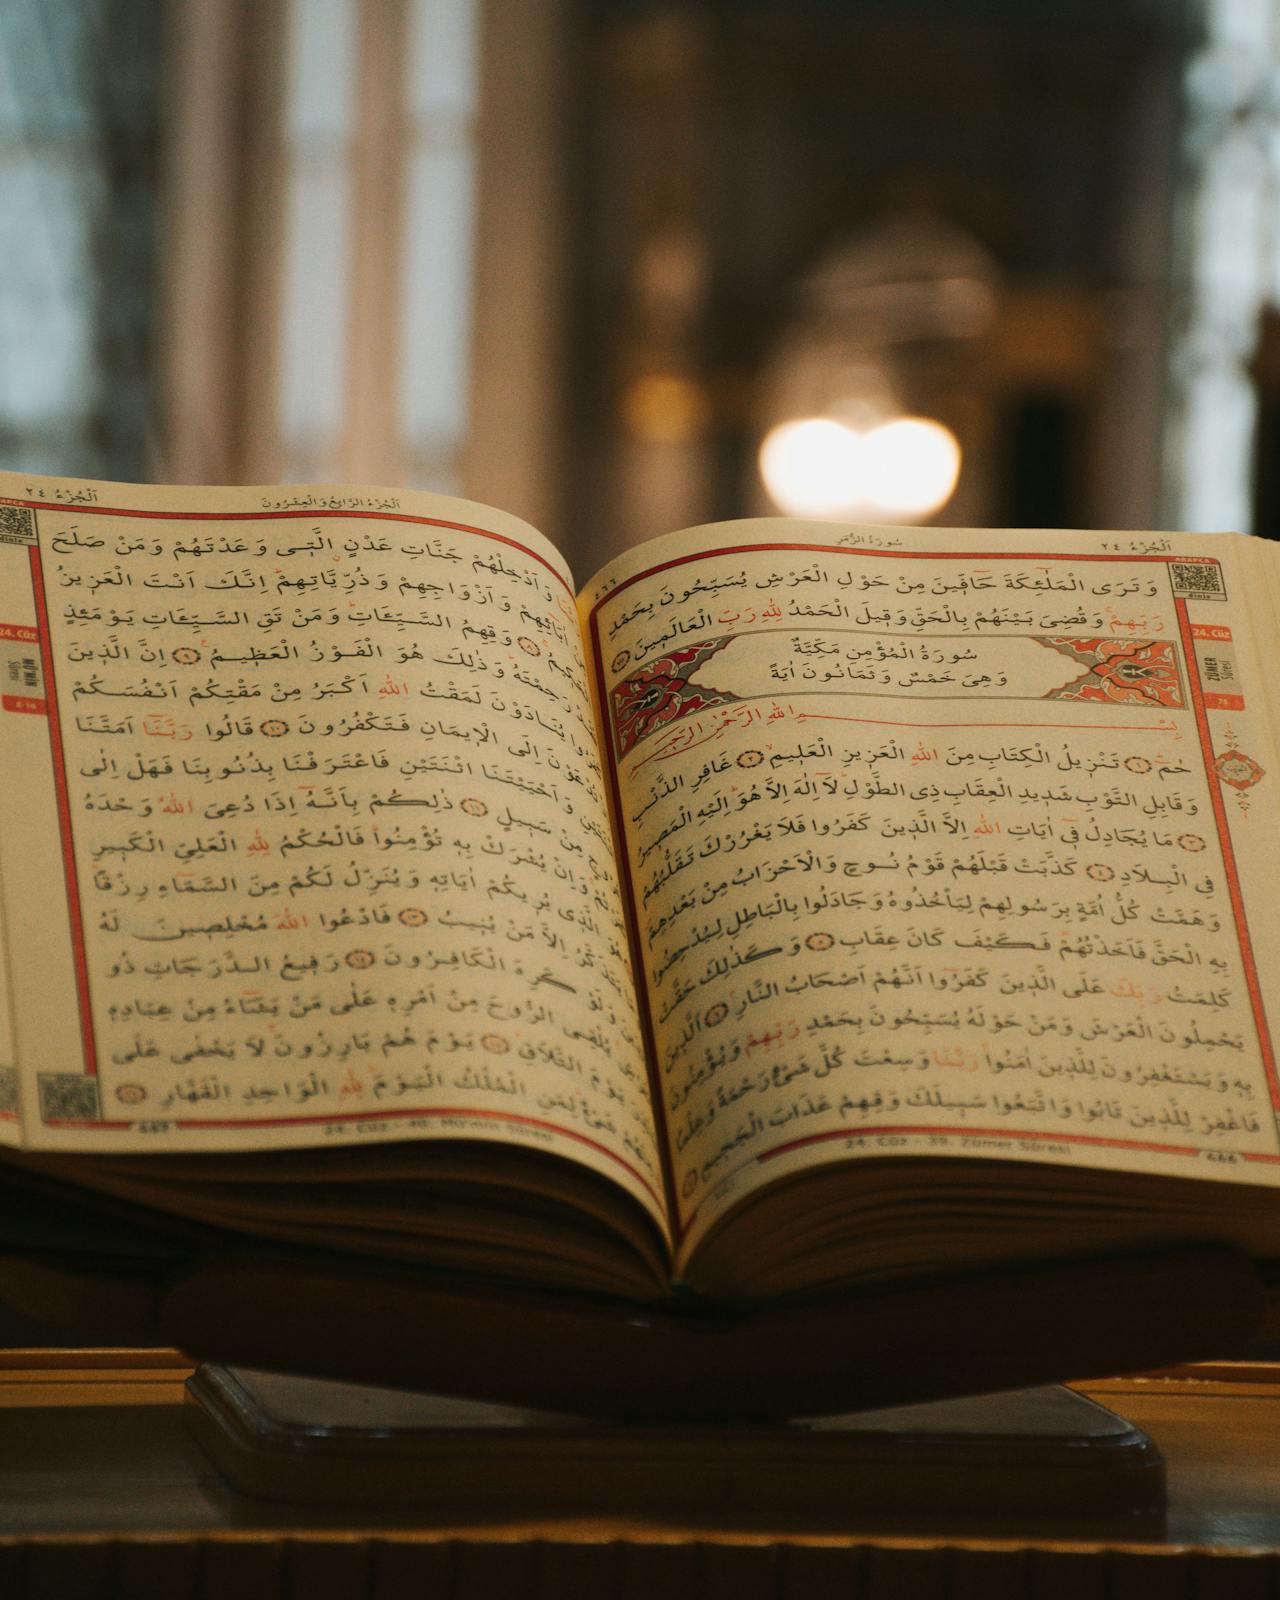 اَلْجُزْءُ ٢٤
سُورَةُ الزُّمَرِ
٤٦٦
وَتَرَى الْمَلٰٓئِكَةَ حَٓافّ۪ينَ مِنْ حَوْلِ الْعَرْشِ يُسَبِّحُونَ بِحَمْدِ
رَبِّهِمْۚ وَقُضِيَ بَيْنَهُمْ بِالْحَقِّ وَق۪يلَ الْحَمْدُ لِلّٰهِ رَبِّ الْعَالَم۪ينَ ٧٥
سُورَةُ الْمُؤْمِنِ مَكِّيَّةٌ
وَهِيَ خَمْسٌ وَثَمَانُونَ اٰيَةً
بِسْمِ اللّٰهِ الرَّحْمٰنِ الرَّح۪يمِ
حٰمٓ ١ تَنْز۪يلُ الْكِتَابِ مِنَ اللّٰهِ الْعَز۪يزِ الْعَل۪يمِۙ ٢ غَافِرِ الذَّنْبِ
وَقَابِلِ التَّوْبِ شَد۪يدِ الْعِقَابِ ذِي الطَّوْلِۜ لَٓا اِلٰهَ اِلَّا هُوَۜ اِلَيْهِ الْمَص۪يرُ
٣ مَا يُجَادِلُ ف۪ٓي اٰيَاتِ اللّٰهِ اِلَّا الَّذ۪ينَ كَفَرُوا فَلَا يَغْرُرْكَ تَقَلُّبُهُمْ
فِي الْبِلَادِ ٤ كَذَّبَتْ قَبْلَهُمْ قَوْمُ نُوحٍ وَالْاَحْزَابُ مِنْ بَعْدِهِمْۖ
وَهَمَّتْ كُلُّ اُمَّةٍ بِرَسُولِهِمْ لِيَأْخُذُوهُ وَجَادَلُوا بِالْبَاطِلِ لِيُدْحِضُوا
بِهِ الْحَقَّ فَاَخَذْتُهُمْ۠ فَكَيْفَ كَانَ عِقَابِ ٥ وَكَذٰلِكَ حَقَّتْ
كَلِمَتُ رَبِّكَ عَلَى الَّذ۪ينَ كَفَرُٓوا اَنَّهُمْ اَصْحَابُ النَّارِۢ ٦ اَلَّذ۪ينَ
يَحْمِلُونَ الْعَرْشَ وَمَنْ حَوْلَهُ يُسَبِّحُونَ بِحَمْدِ رَبِّهِمْ وَيُؤْمِنُونَ
بِه۪ وَيَسْتَغْفِرُونَ لِلَّذ۪ينَ اٰمَنُواۚ رَبَّنَا وَسِعْتَ كُلَّ شَيْءٍ رَحْمَةً وَعِلْمًا
فَاغْفِرْ لِلَّذ۪ينَ تَابُوا وَاتَّبَعُوا سَب۪يلَكَ وَقِهِمْ عَذَابَ الْجَح۪يمِ ٧
24. Cüz - 39. Zümer Sûresi
466
ARAPÇA
dinle
24. Cüz
ZÜMER
Sûresi
75
اَلْجُزْءُ الرَّابِعُ وَالْعِشْرُونَ
اَلْجُزْءُ ٢٤
وَاَدْخِلْهُمْ جَنَّاتِ عَدْنٍۨ الَّت۪ي وَعَدْتَهُمْ وَمَنْ صَلَحَ
وَاَزْوَاجِهِمْ وَذُرِّيَّاتِهِمْۜ اِنَّكَ اَنْتَ الْعَز۪يزُ
٨ وَقِهِمُ السَّيِّـَٔاتِۜ وَمَنْ تَقِ السَّيِّـَٔاتِ يَوْمَئِذٍ
وَذٰلِكَ هُوَ الْفَوْزُ الْعَظ۪يمُ۟ ٩ اِنَّ الَّذ۪ينَ
يُنَادَوْنَ لَمَقْتُ اللّٰهِ اَكْبَرُ مِنْ مَقْتِكُمْ اَنْفُسَكُمْ
اِلَى الْا۪يمَانِ فَتَكْفُرُونَ ١٠ قَالُوا رَبَّنَٓا اَمَتَّنَا
وَاَحْيَيْتَنَا اثْنَتَيْنِ فَاعْتَرَفْنَا بِذُنُوبِنَا فَهَلْ اِلٰى
مِنْ سَب۪يلٍ ١١ ذٰلِكُمْ بِاَنَّهُٓ اِذَا دُعِيَ اللّٰهُ وَحْدَهُ
وَاِنْ يُشْرَكْ بِه۪ تُؤْمِنُواۜ فَالْحُكْمُ لِلّٰهِ الْعَلِيِّ الْكَب۪يرِ
يُر۪يكُمْ اٰيَاتِه۪ وَيُنَزِّلُ لَكُمْ مِنَ السَّمَٓاءِ رِزْقًاۜ
اِلَّا مَنْ يُن۪يبُ ١٣ فَادْعُوا اللّٰهَ مُخْلِص۪ينَ لَهُ
كَرِهَ الْكَافِرُونَ ١٤ رَف۪يعُ الدَّرَجَاتِ ذُو
يُلْقِي الرُّوحَ مِنْ اَمْرِه۪ عَلٰى مَنْ يَشَٓاءُ مِنْ عِبَادِه۪
يَوْمَ التَّلَاقِۙ ١٥ يَوْمَ هُمْ بَارِزُونَۚ لَا يَخْفٰى عَلَى
لِمَنِ الْمُلْكُ الْيَوْمَۜ لِلّٰهِ الْوَاحِدِ الْقَهَّارِ ١٦
24. Cüz - 40. Mü'min Sûresi
467
ARAPÇA
dinle
24. Cüz
MÜ'MİN
Sûresi
8-16